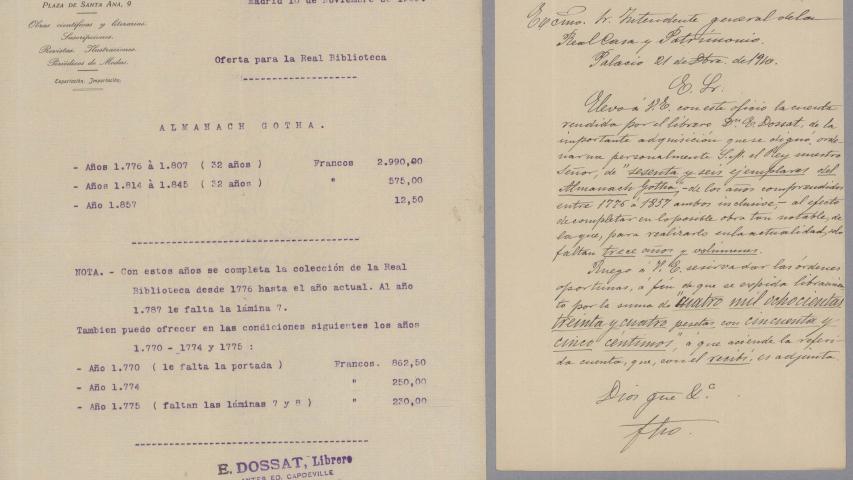 PLAZA DE SANTA ANA, 9
Obras científicas y literarias.
Suscripciones.
Revistas. Ilustraciones.
Periódicos de Modas.
Exportación. Importación.
Madrid 10 de Noviembre de
Oferta para la Real Biblioteca
ALMANACH GOTHA.
- Años 1.776 à 1.807 ( 32 años ) Francos 2.990,00
- Años 1.814 à 1.845 ( 32 años ) " 575,00
- Año 1.857 12,50
NOTA. - Con estos años se completa la colección de la Real
Biblioteca desde 1776 hasta el año actual. Al año
1.787 le falta la lámina 7.
Tambien puedo ofrecer en las condiciones siguientes los años
1.770 - 1774 y 1775 :
- Año 1.770 ( le falta la portada ) Francos. 862,50
- Año 1.774 " 250,00
- Año 1.775 ( faltan las láminas 7 y 8 ) " 230,00
E. DOSSAT, Librero
ANTES ED. CAPDEVILLE
Excmo. Sr. Intendente general de la
Real Casa y Patrimonio.
Palacio 21 de Dbre. de 1910.
E. Sr.
Elevo á V.E. con este oficio la cuenta
rendida por el librero Dn. E. Dossat, de la
importante adquisición que se dignó, orde-
narma personalmente S.M. el Rey nuestro
Señor, de "sesenta y seis ejemplares del
Almanach Gotha", - de los años comprendidos
entre 1776 á 1857 ambos inclusive, - al efecto
de completar en lo posible obra tan notable, de
la que, para realizarlo en la actualidad, solo
faltan trece años y volúmenes.
Ruego á V.E. se sirva dar las órdenes
oportunas, á fin de que se expida libramien-
to por la suma de "cuatro mil ochocientas
treinta y cuatro pesetas, con cincuenta y
cinco céntimos", á que asciende la referi-
da cuenta, que, con el recibí, es adjunta.
Dios gue &ª
fho.